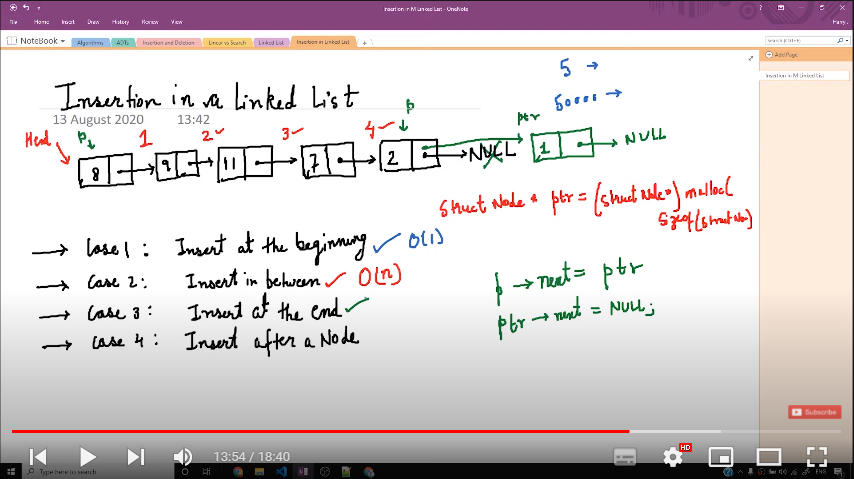 Insertion in M Linked List - OneNote
Harry
File Home Insert Draw History Review View
NoteBook Algorithms ADTs Insertion and Deletion Linear vs Search Linked List Insertion in Linked List +
Search (Ctrl+E)
Add Page
Insertion in M Linked List
5 →
50000 →
Insertion in a Linked List
13 August 2020 13:42
p ptr
Head p 1 2 3 4
8 9 11 7 2 NULL 1 NULL
struct Node * ptr = (struct Node*) malloc(
sizeof(struct Node)
→ Case 1 : Insert at the beginning O(1)
→ Case 2: Insert in between O(n)
→ Case 3: Insert at the end
→ Case 4: Insert after a Node
p → next = ptr
ptr → next = NULL;
Subscribe
13:54 / 18:40
HD
Type here to search
ENG